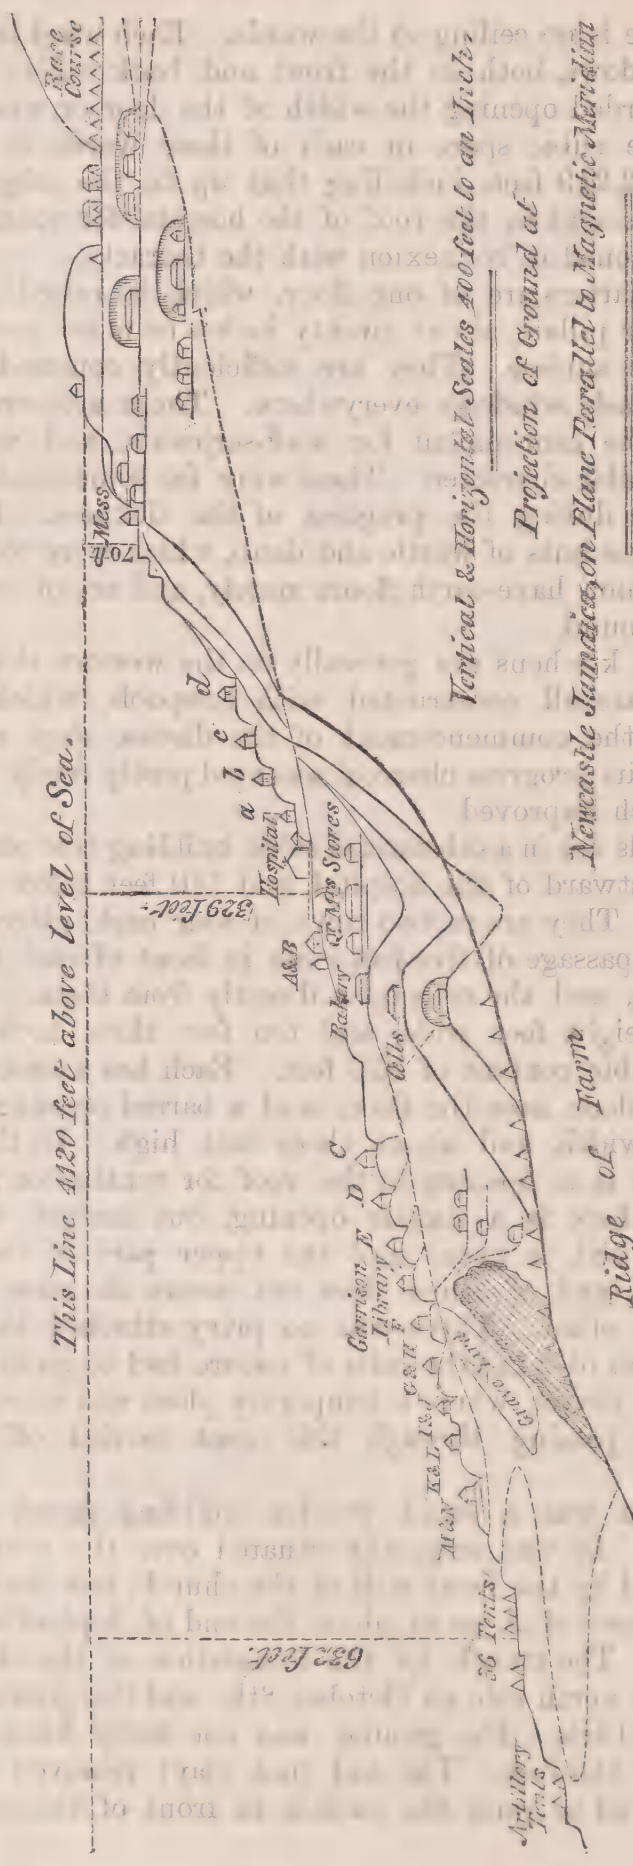 This Line 4120 feet above level of Sea.
Race
Course
Mess
70 ft.
d
c
b
a
Hospital
329 feet.
A&B
Qr. Mr's Stores
Bakery
Cells
C
D
E
Garrison
Library
F
G&H
I&J
K&L
M&N
Grave Yard
632 feet.
36 Tents
Artillery
Tents
Ridge of Farm
Vertical & Horizontal Scales 400 feet to an Inch.
Projection of Ground at
Newcastle Jamaica, on Plane Parallel to Magnetic Meridian